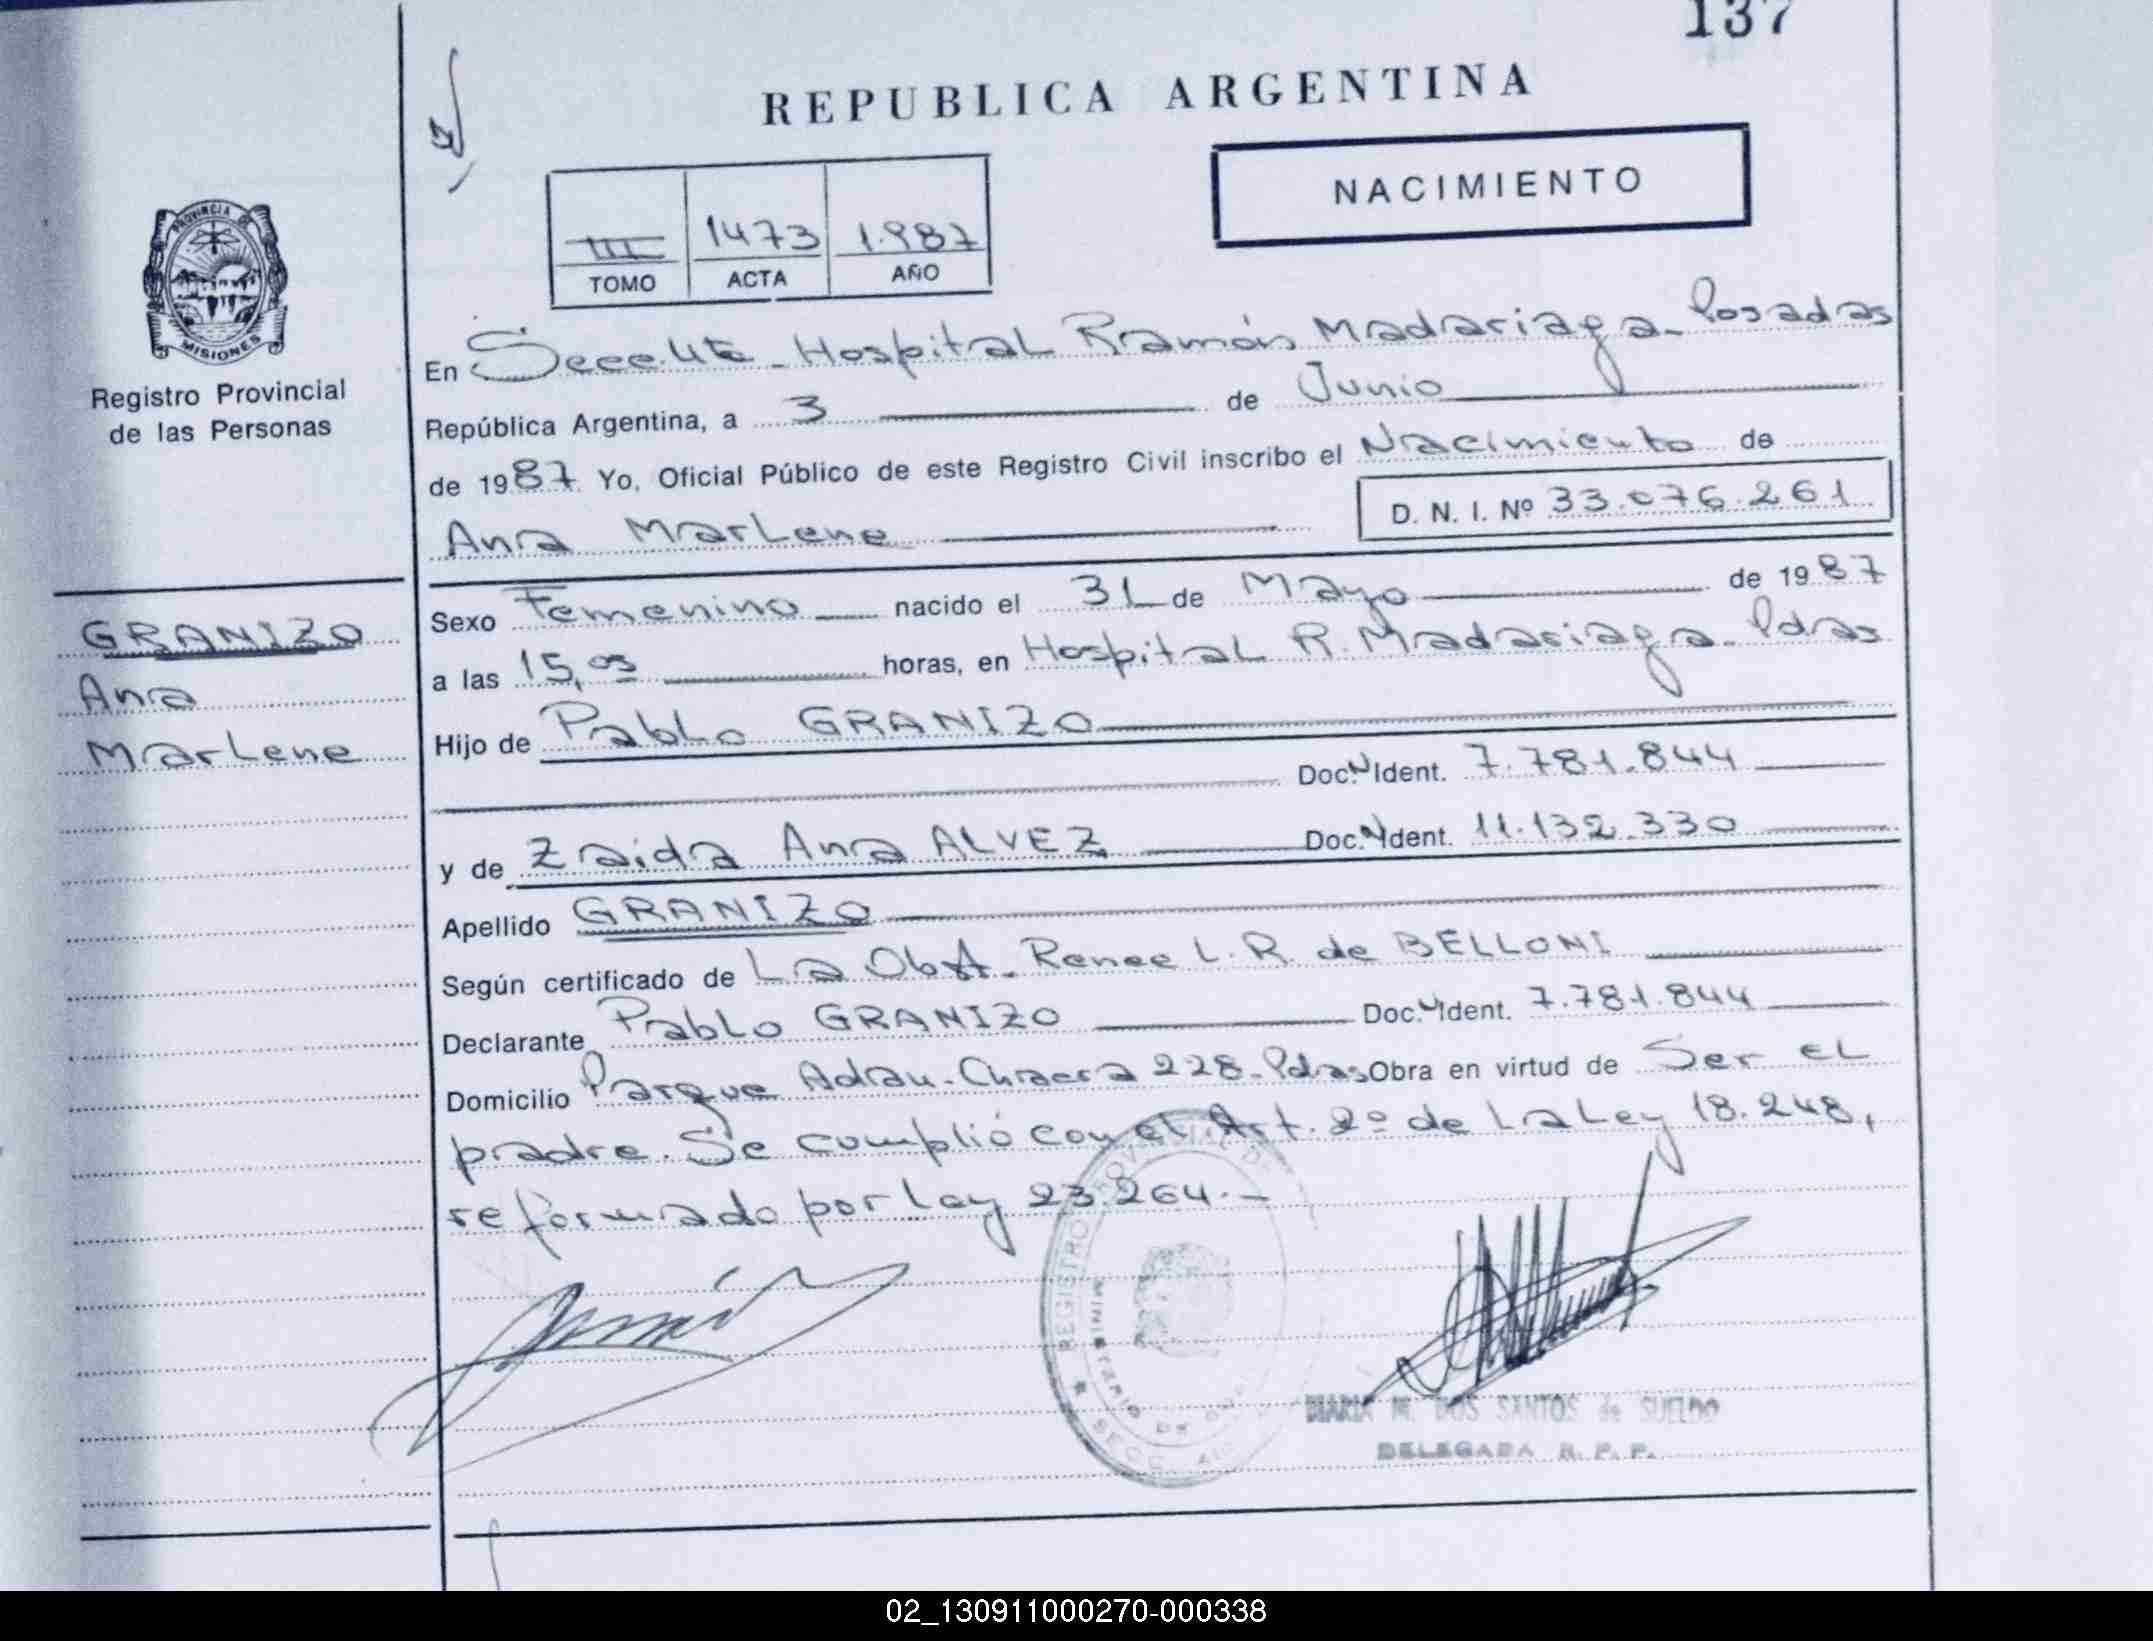 137
REPUBLICA ARGENTINA
NACIMIENTO
III 1473 1.987
TOMO ACTA AÑO
PROVINCIA DE
MISIONES
Registro Provincial
de las Personas
En Secc. 4ta - Hospital Ramón Madariaga - Posadas
República Argentina, a 3 de Junio
de 1987 Yo, Oficial Público de este Registro Civil inscribo el Nacimiento de
Ana Marlene D. N. I. Nº 33.076.261
GRANIZO
Ana
Marlene
Sexo Femenino nacido el 31 de Mayo de 1987
a las 15,05 horas, en Hospital R. Madariaga - Pdas
Hijo de Pablo GRANIZO
Doc. N Ident. 7.781.844
y de Zaida Ana ALVEZ Doc. N Ident. 11.132.330
Apellido GRANIZO
Según certificado de La Obst. Renee L. R. de BELLONI
Declarante Pablo GRANIZO Doc. N Ident. 7.781.844
Domicilio Parque Adau. Chacra 228 - Pdas Obra en virtud de Ser el
padre. Se cumplió con el Art. 2º de la Ley 18.248,
reformado por Ley 23.264.-
REGISTRO PROVINCIAL DE
MINISTERIO DE
SECC.
MARIA M. DOS SANTOS de SUELDO
DELEGADA R. P. P.
02_130911000270-000338